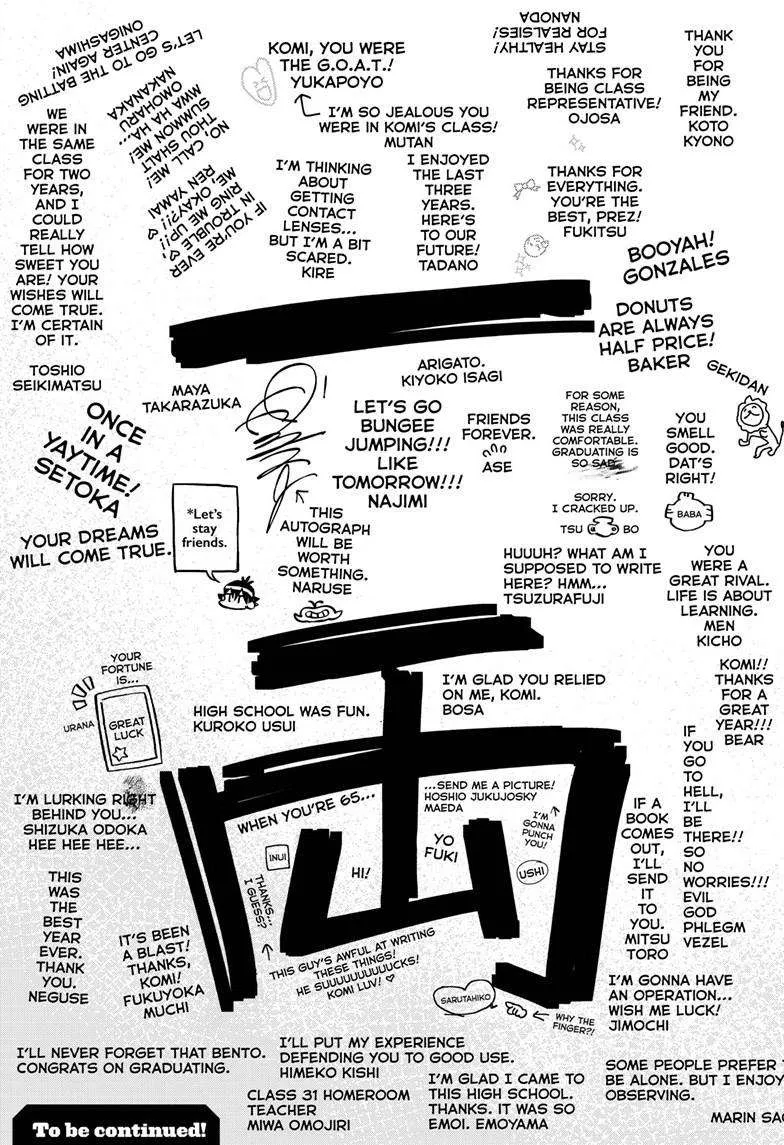 LET'S GO TO THE BATTING
CENTER AGAIN!
ONIGASHIMA
NO, CALL ME!
THOU SHALT
SUMMON ME!
MWA HA HA...
OMOHARU
NAKANAKA
IF YOU'RE EVER
IN TROUBLE,
RING ME UP!!
ME, OKAY?!!
REN YAMAI
KOMI, YOU WERE
THE G.O.A.T.!
YUKAPOYO
I'M SO JEALOUS YOU
WERE IN KOMI'S CLASS!
MUTAN
STAY HEALTHY!
FOR REALSIES!
NANODA
THANKS FOR
BEING CLASS
REPRESENTATIVE!
OJOSA
THANK
YOU
FOR
BEING
MY
FRIEND.
KOTO
KYONO
WE
WERE IN
THE SAME
CLASS
FOR TWO
YEARS,
AND I
COULD
REALLY
TELL HOW
SWEET YOU
ARE! YOUR
WISHES WILL
COME TRUE.
I'M CERTAIN
OF IT.
TOSHIO
SEIKIMATSU
I'M THINKING
ABOUT
GETTING
CONTACT
LENSES...
BUT I'M A BIT
SCARED.
KIRE
I ENJOYED
THE LAST
THREE
YEARS.
HERE'S
TO OUR
FUTURE!
TADANO
THANKS FOR
EVERYTHING.
YOU'RE THE
BEST, PREZ!
FUKITSU
BOOYAH!
GONZALES
DONUTS
ARE ALWAYS
HALF PRICE!
BAKER
GEKIDAN
MAYA
TAKARAZUKA
ARIGATO.
KIYOKO ISAGI
ONCE
IN A
YAYTIME!
SETOKA
LET'S GO
BUNGEE
JUMPING!!!
LIKE
TOMORROW!!!
NAJIMI
FRIENDS
FOREVER.
ASE
FOR SOME
REASON,
THIS CLASS
WAS REALLY
COMFORTABLE.
GRADUATING IS
SO SAD.
SORRY.
I CRACKED UP.
TSU BO
YOU
SMELL
GOOD.
DAT'S
RIGHT!
BABA
YOUR DREAMS
WILL COME TRUE.
*Let's
stay
friends.
THIS
AUTOGRAPH
WILL BE
WORTH
SOMETHING.
NARUSE
HUUUH? WHAT AM I
SUPPOSED TO WRITE
HERE? HMM...
TSUZURAFUJI
YOU
WERE A
GREAT RIVAL.
LIFE IS ABOUT
LEARNING.
MEN
KICHO
YOUR
FORTUNE
IS...
URANA
GREAT
LUCK
HIGH SCHOOL WAS FUN.
KUROKO USUI
I'M GLAD YOU RELIED
ON ME, KOMI.
BOSA
KOMI!!
THANKS
FOR A
GREAT
YEAR!!!
BEAR
IF
YOU
GO
TO
HELL,
I'LL
BE
THERE!!
SO
NO
WORRIES!!!
EVIL
GOD
PHLEGM
VEZEL
I'M LURKING RIGHT
BEHIND YOU...
SHIZUKA ODOKA
HEE HEE HEE...
WHEN YOU'RE 65...
...SEND ME A PICTURE!
HOSHIO JUKUJOSKY
MAEDA
I'M
GONNA
PUNCH
YOU!
USHI
INUI
HI!
YO
FUKI
THANKS...
I GUESS?
THIS GUY'S AWFUL AT WRITING
THESE THINGS!
HE SUUUUUUUUUCKS!
KOMI LUV! ♡
IF A
BOOK
COMES
OUT,
I'LL
SEND
IT
TO
YOU.
MITSU
TORO
THIS
WAS
THE
BEST
YEAR
EVER.
THANK
YOU.
NEGUSE
IT'S BEEN
A BLAST!
THANKS,
KOMI!
FUKUYOKA
MUCHI
SARUTAHIKO
WHY THE
FINGER?!
I'M GONNA HAVE
AN OPERATION...
WISH ME LUCK!
JIMOCHI
I'LL NEVER FORGET THAT BENTO.
CONGRATS ON GRADUATING.
I'LL PUT MY EXPERIENCE
DEFENDING YOU TO GOOD USE.
HIMEKO KISHI
CLASS 31 HOMEROOM
TEACHER
MIWA OMOJIRI
I'M GLAD I CAME TO
THIS HIGH SCHOOL.
THANKS. IT WAS SO
EMOI. EMOYAMA
SOME PEOPLE PREFER
BE ALONE. BUT I ENJOY
OBSERVING.
MARIN
To be continued!